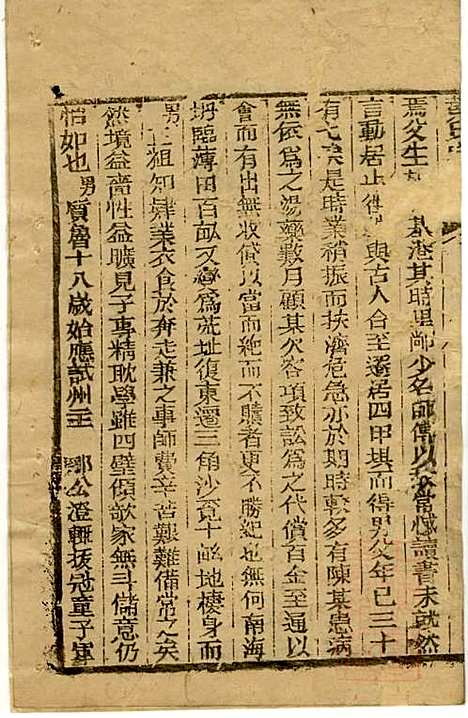 焉父生 其時里鄰少名師傅以 常憾讀書未就然
言動居止得 與古人合至遷居四甲垻而得男父年已三十
有七矣是時業稍振而扶濟危急亦於期時較多有陳某患病
無依爲之湯藥數月顧某欠客項致訟爲之代償百金至通以
會而有出無收貸以當而絶而不贖者更不勝紀也無何南海
坍臨薄田百畝又 爲荒址復東遷三角沙覓十畝地棲身而
男 祖知肄業衣食於奔走兼之事師費辛苦艱難備常之矣
然境益嗇性益曠見子專精耽學雖四壁傾欹家無斗儲意仍
怡如也男質魯十八歲始應試州主 鄒公澄輙拔冠童子軍